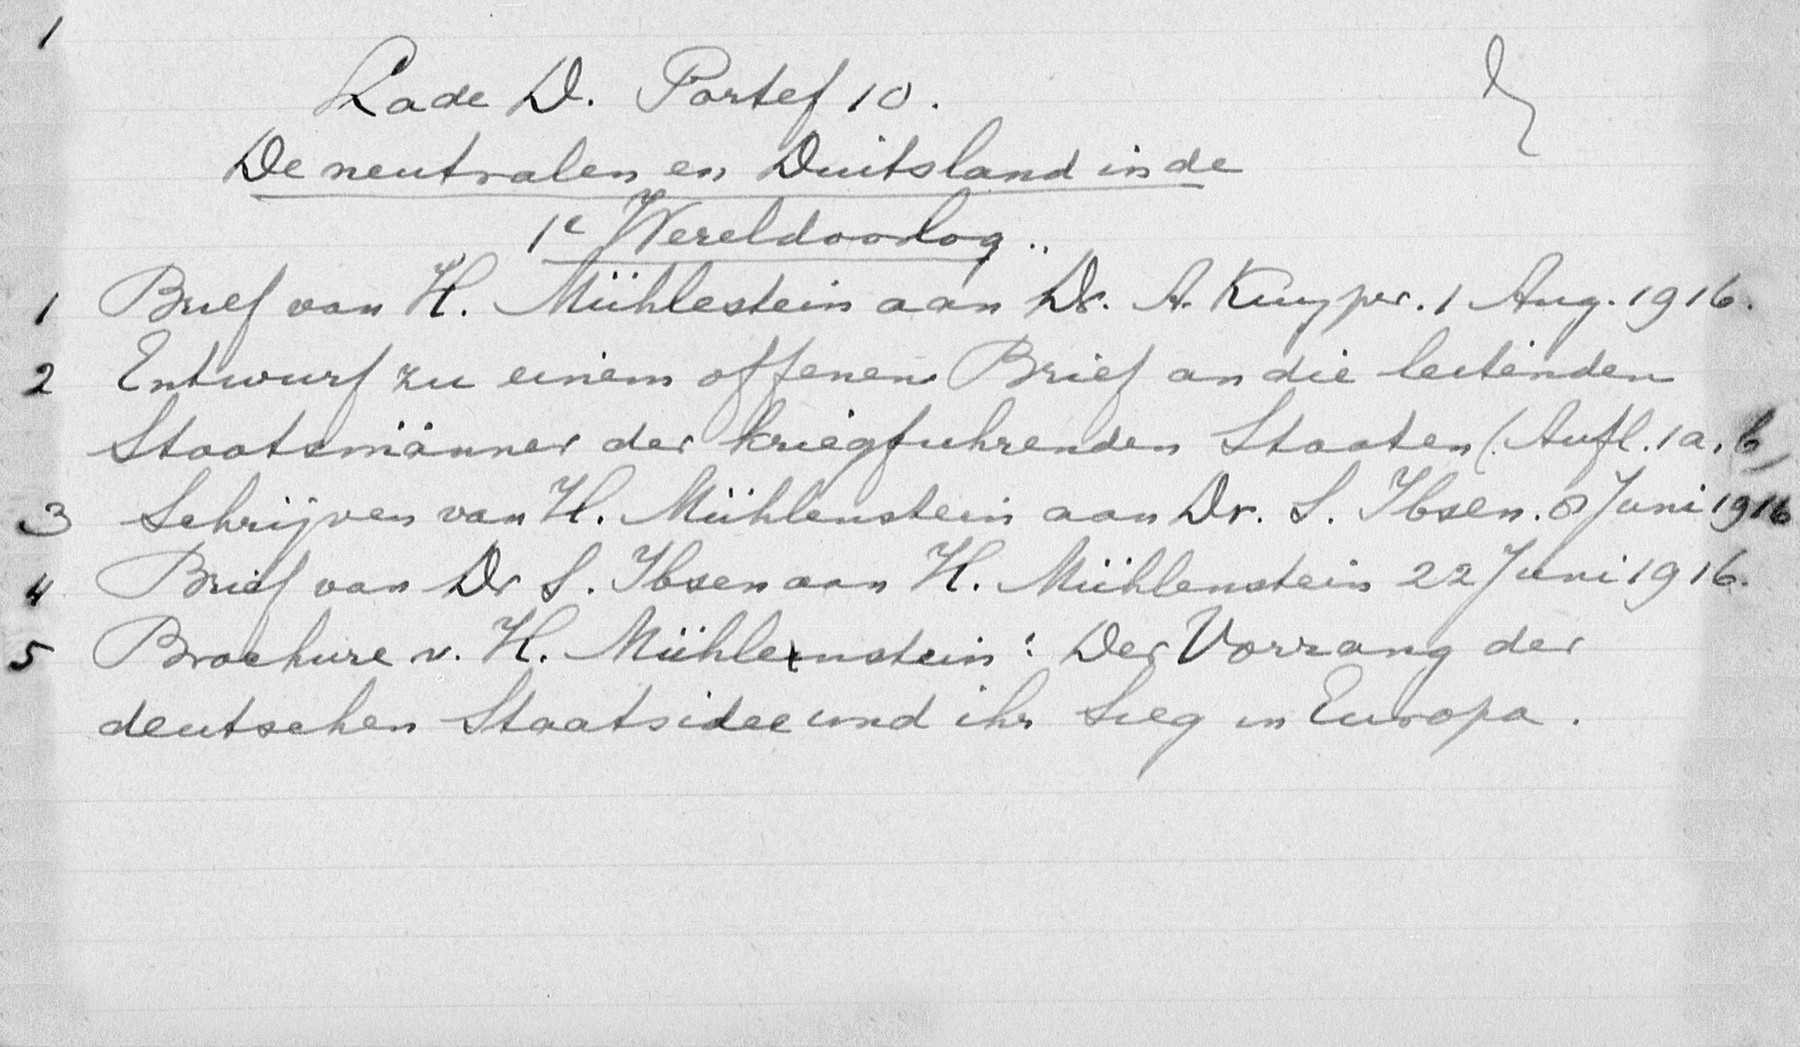 1
Lade D. Portef 10.
De neutralen en Duitsland in de
1e Wereldoorlog..
1 Brief van H. Mühlestein aan Dr. A. Kuyper. 1 Aug. 1916.
2 Entwurf zu einem offenen Brief an die leitenden
Staatsmänner der kriegfuhrenden Staaten (Aufl. 1a, b)
3 Schrijven van H. Mühlenstein aan Dr. S. Ibsen. 8 Juni 1916
4 Brief van Dr S. Ibsen aan H. Mühlenstein 22 Juni 1916.
5 Brochure v. H. Mühlenstein: Der Vorrang der
deutschen Staatsidee und ihr Sieg in Europa.